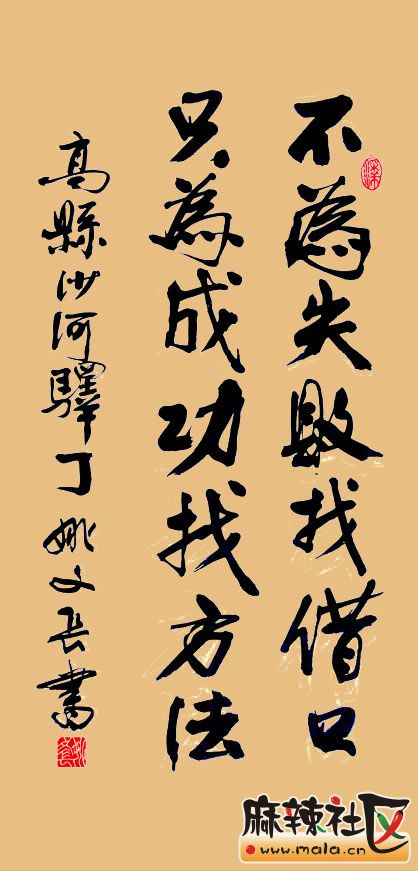 不為失敗找借口
只為成功找方法
高縣沙河驛丁姚文長書
麻辣社区
www.mala.cn